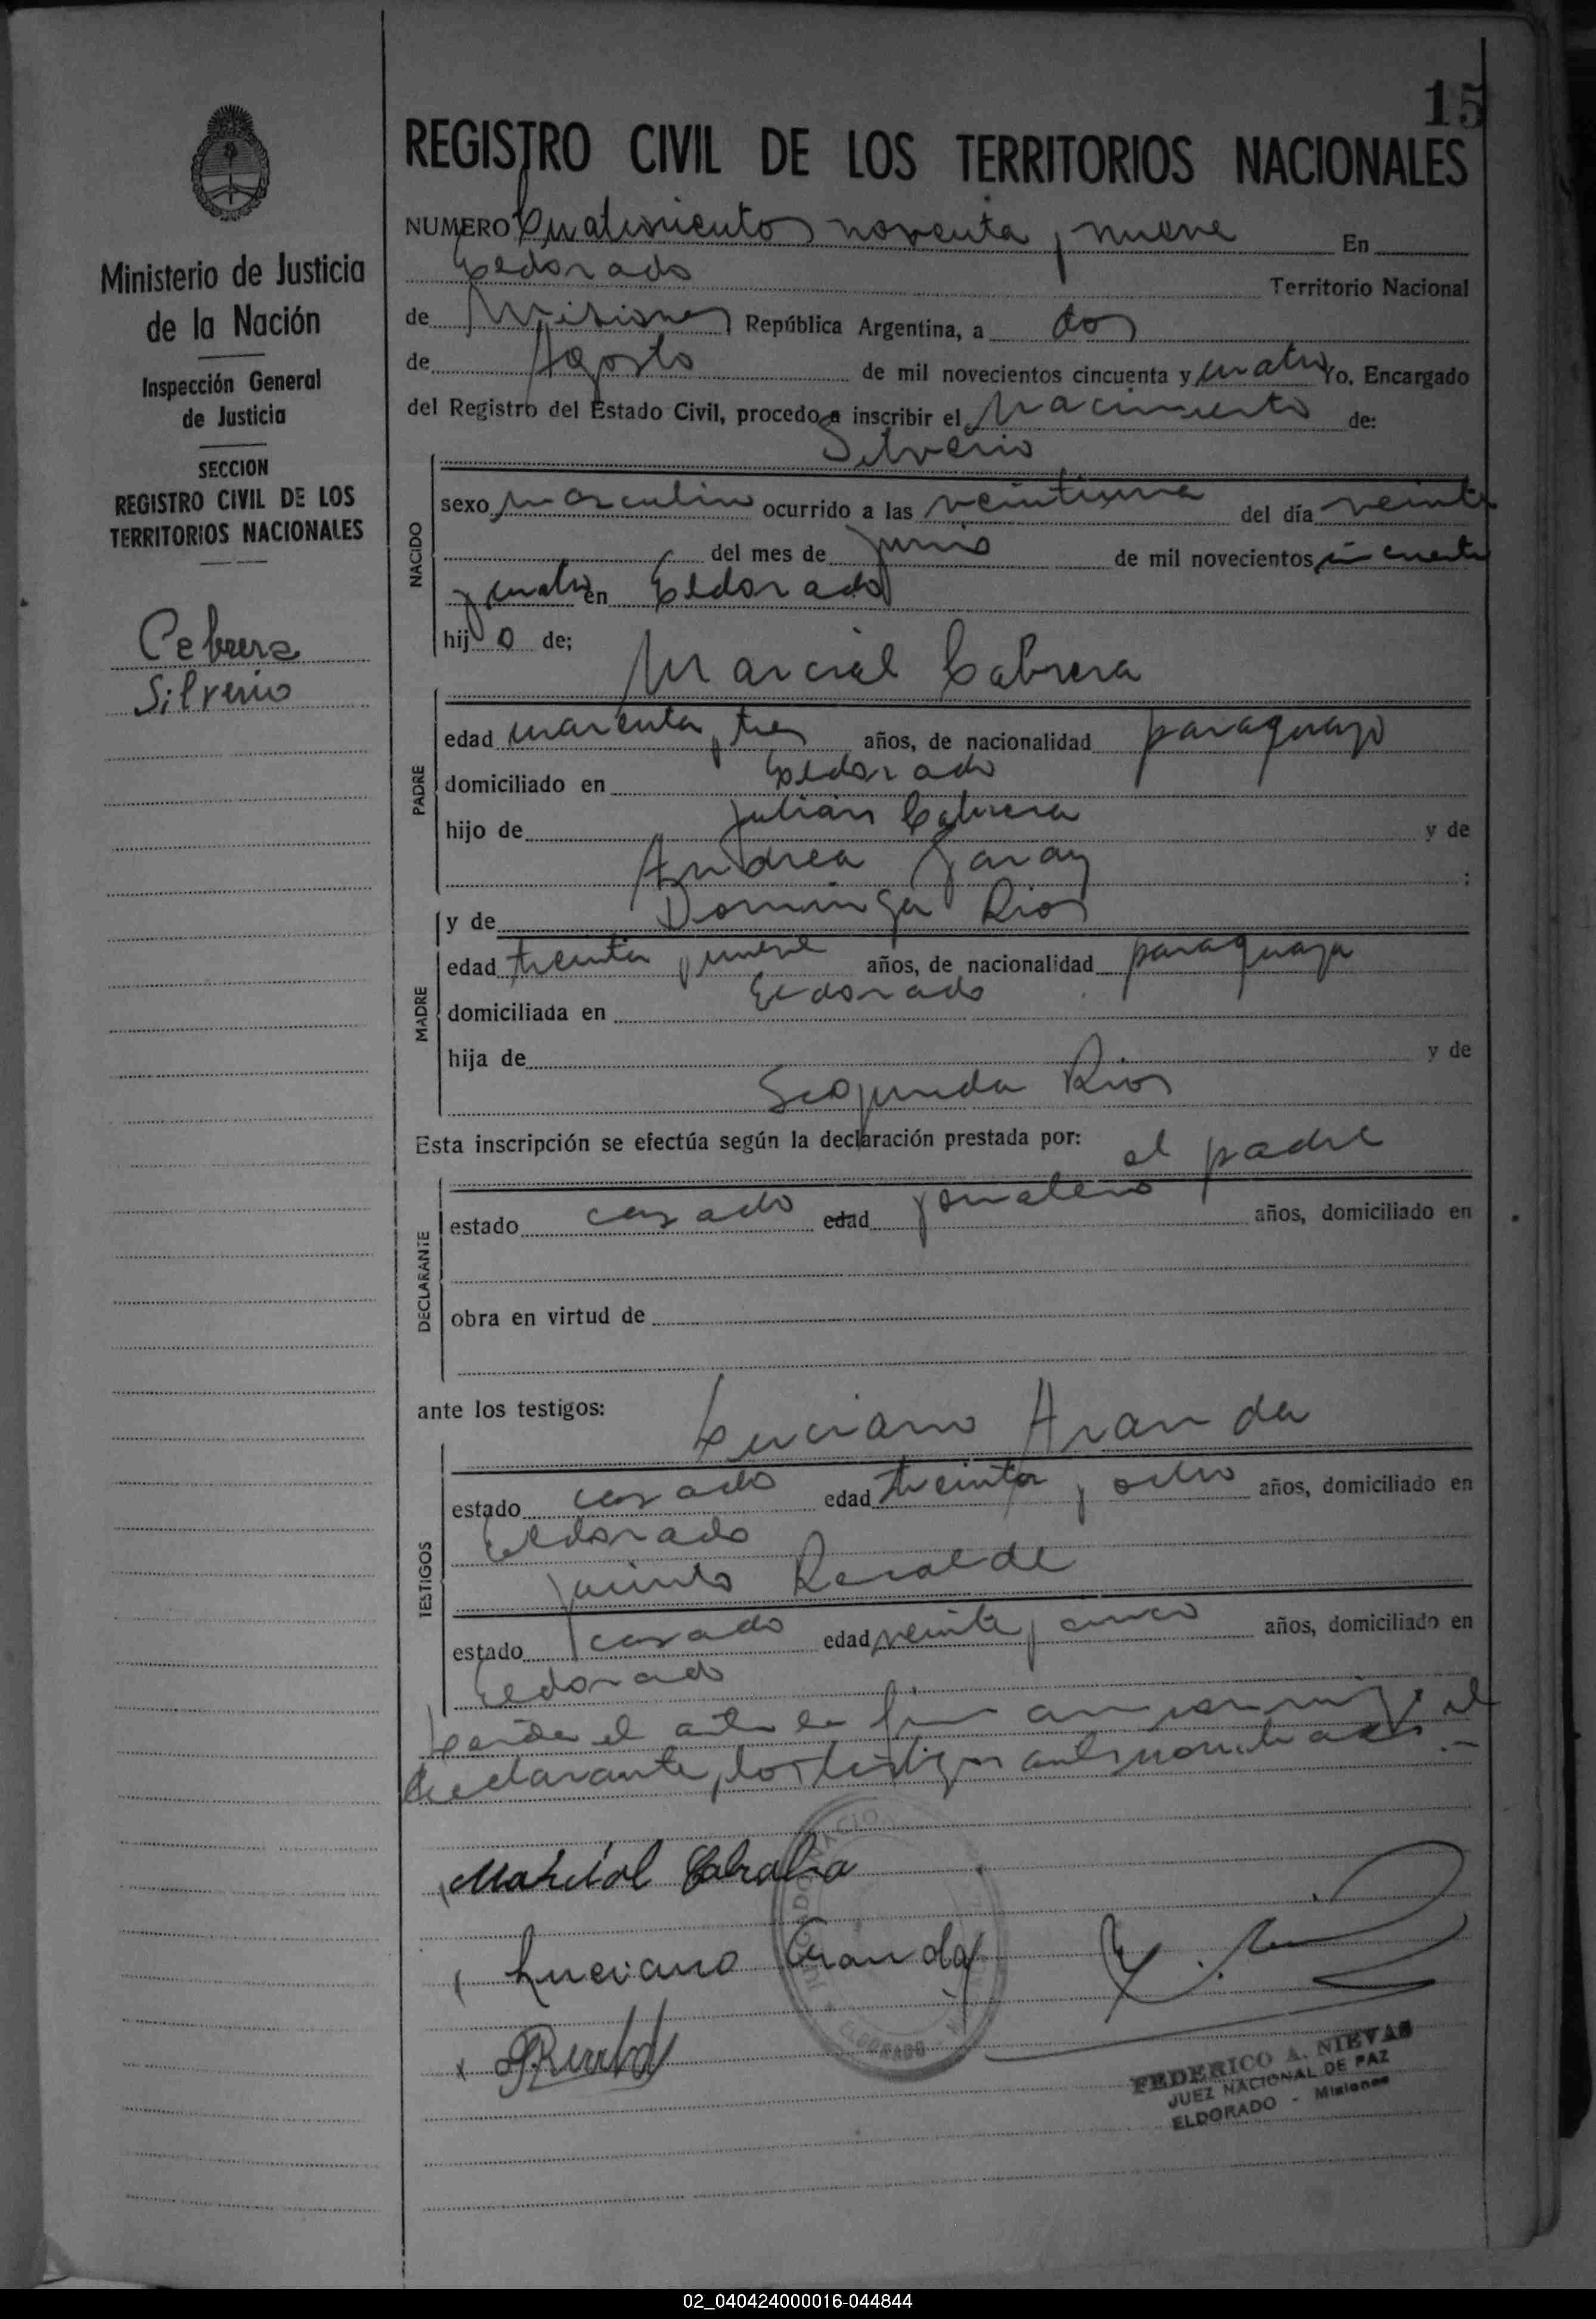 15
REGISTRO CIVIL DE LOS TERRITORIOS NACIONALES
Ministerio de Justicia
de la Nación
Inspección General
de Justicia
SECCION
REGISTRO CIVIL DE LOS
TERRITORIOS NACIONALES
Cabrera
Silverio
NUMERO Cuatrocientos noventa y nueve En
Eldorado Territorio Nacional
de Misiones República Argentina, a dos
de Agosto de mil novecientos cincuenta y cuatro Yo, Encargado
del Registro del Estado Civil, procedo a inscribir el Nacimiento de:
Silverio
NACIDO
sexo masculino ocurrido a las veintiuna del día veinte
del mes de junio de mil novecientos cincuenta
y cuatro en Eldorado
hijo de;
Marcial Cabrera
PADRE
edad cuarenta y tres años, de nacionalidad paraguayo
domiciliado en Eldorado
hijo de Julián Cabrera y de
Andrea Garay ;
y de Dominga Rios
MADRE
edad treinta y nueve años, de nacionalidad paraguaya
domiciliada en Eldorado
hija de y de
Segunda Rios
Esta inscripción se efectúa según la declaración prestada por:
el padre
DECLARANTE
estado casado edad jornalero años, domiciliado en
obra en virtud de
ante los testigos:
Luciano Aranda
TESTIGOS
estado casado edad treinta y ocho años, domiciliado en
Eldorado
Jacinto Recalde
estado casado edad veinte y cinco años, domiciliado en
Eldorado
Leida el acta la firman conmigo el
declarante y los testigos antes nombrados.-
Marcial Cabrera
Luciano Aranda
ELDORADO
FEDERICO A. NIEVAS
JUEZ NACIONAL DE PAZ
ELDORADO - Misiones
02_040424000016-044844